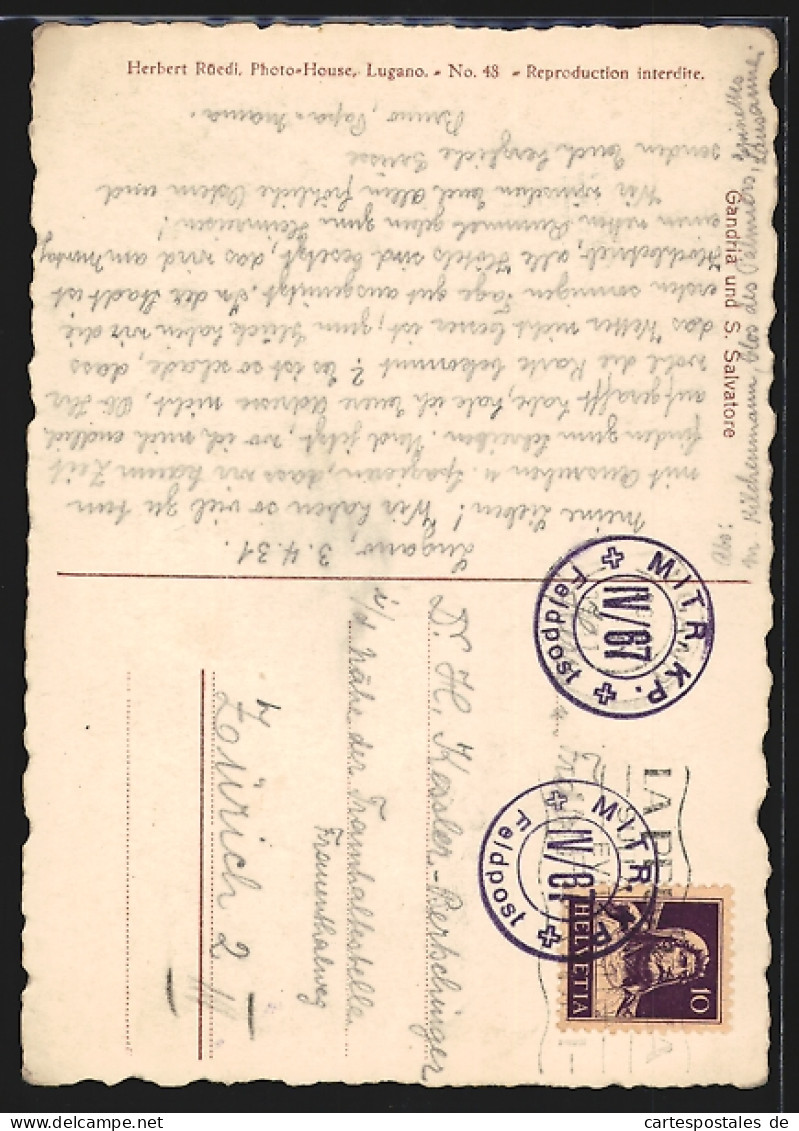 Herbert Rüedi, Photo-House, Lugano. - No. 48 - Reproduction interdite.
Gandria und S. Salvatore
Lugano, 3.4.31.
Meine Lieben! Wir haben so viel zu tun
mit Ausruhen u. Spazieren, dass wir kaum Zeit
finden zum Schreiben. Und jetzt, wo ich mich endlich
aufgerafft habe, habe ich Eure Adresse nicht. Ob Ihr
wohl die Karte bekommt? Es ist so schade, dass
das Wetter nicht besser ist; zum Glück haben wir die
ersten sonnigen Tage gut ausgenützt. In der Stadt ist
Hochbetrieb, alle Hotels sind besetzt, das wird am
einen netten Rummel geben zum Heimreisen!
Wir wünschen Euch allen fröhliche Ostern und
senden Euch herzliche Grüsse
Bruno, Papa + Mama.
Abs:
M. Kilchenmann, Clos des Palmiers, Lausanne
Dr. H. Kessler-Bertschinger
i/d Nähe der Tramhaltestelle
Frauenthalweg
Zürich 2
MITR. KP.
IV/67
Feldpost
MITR. KP.
IV/67
Feldpost
HELVETIA
10
www.cartespostales.de